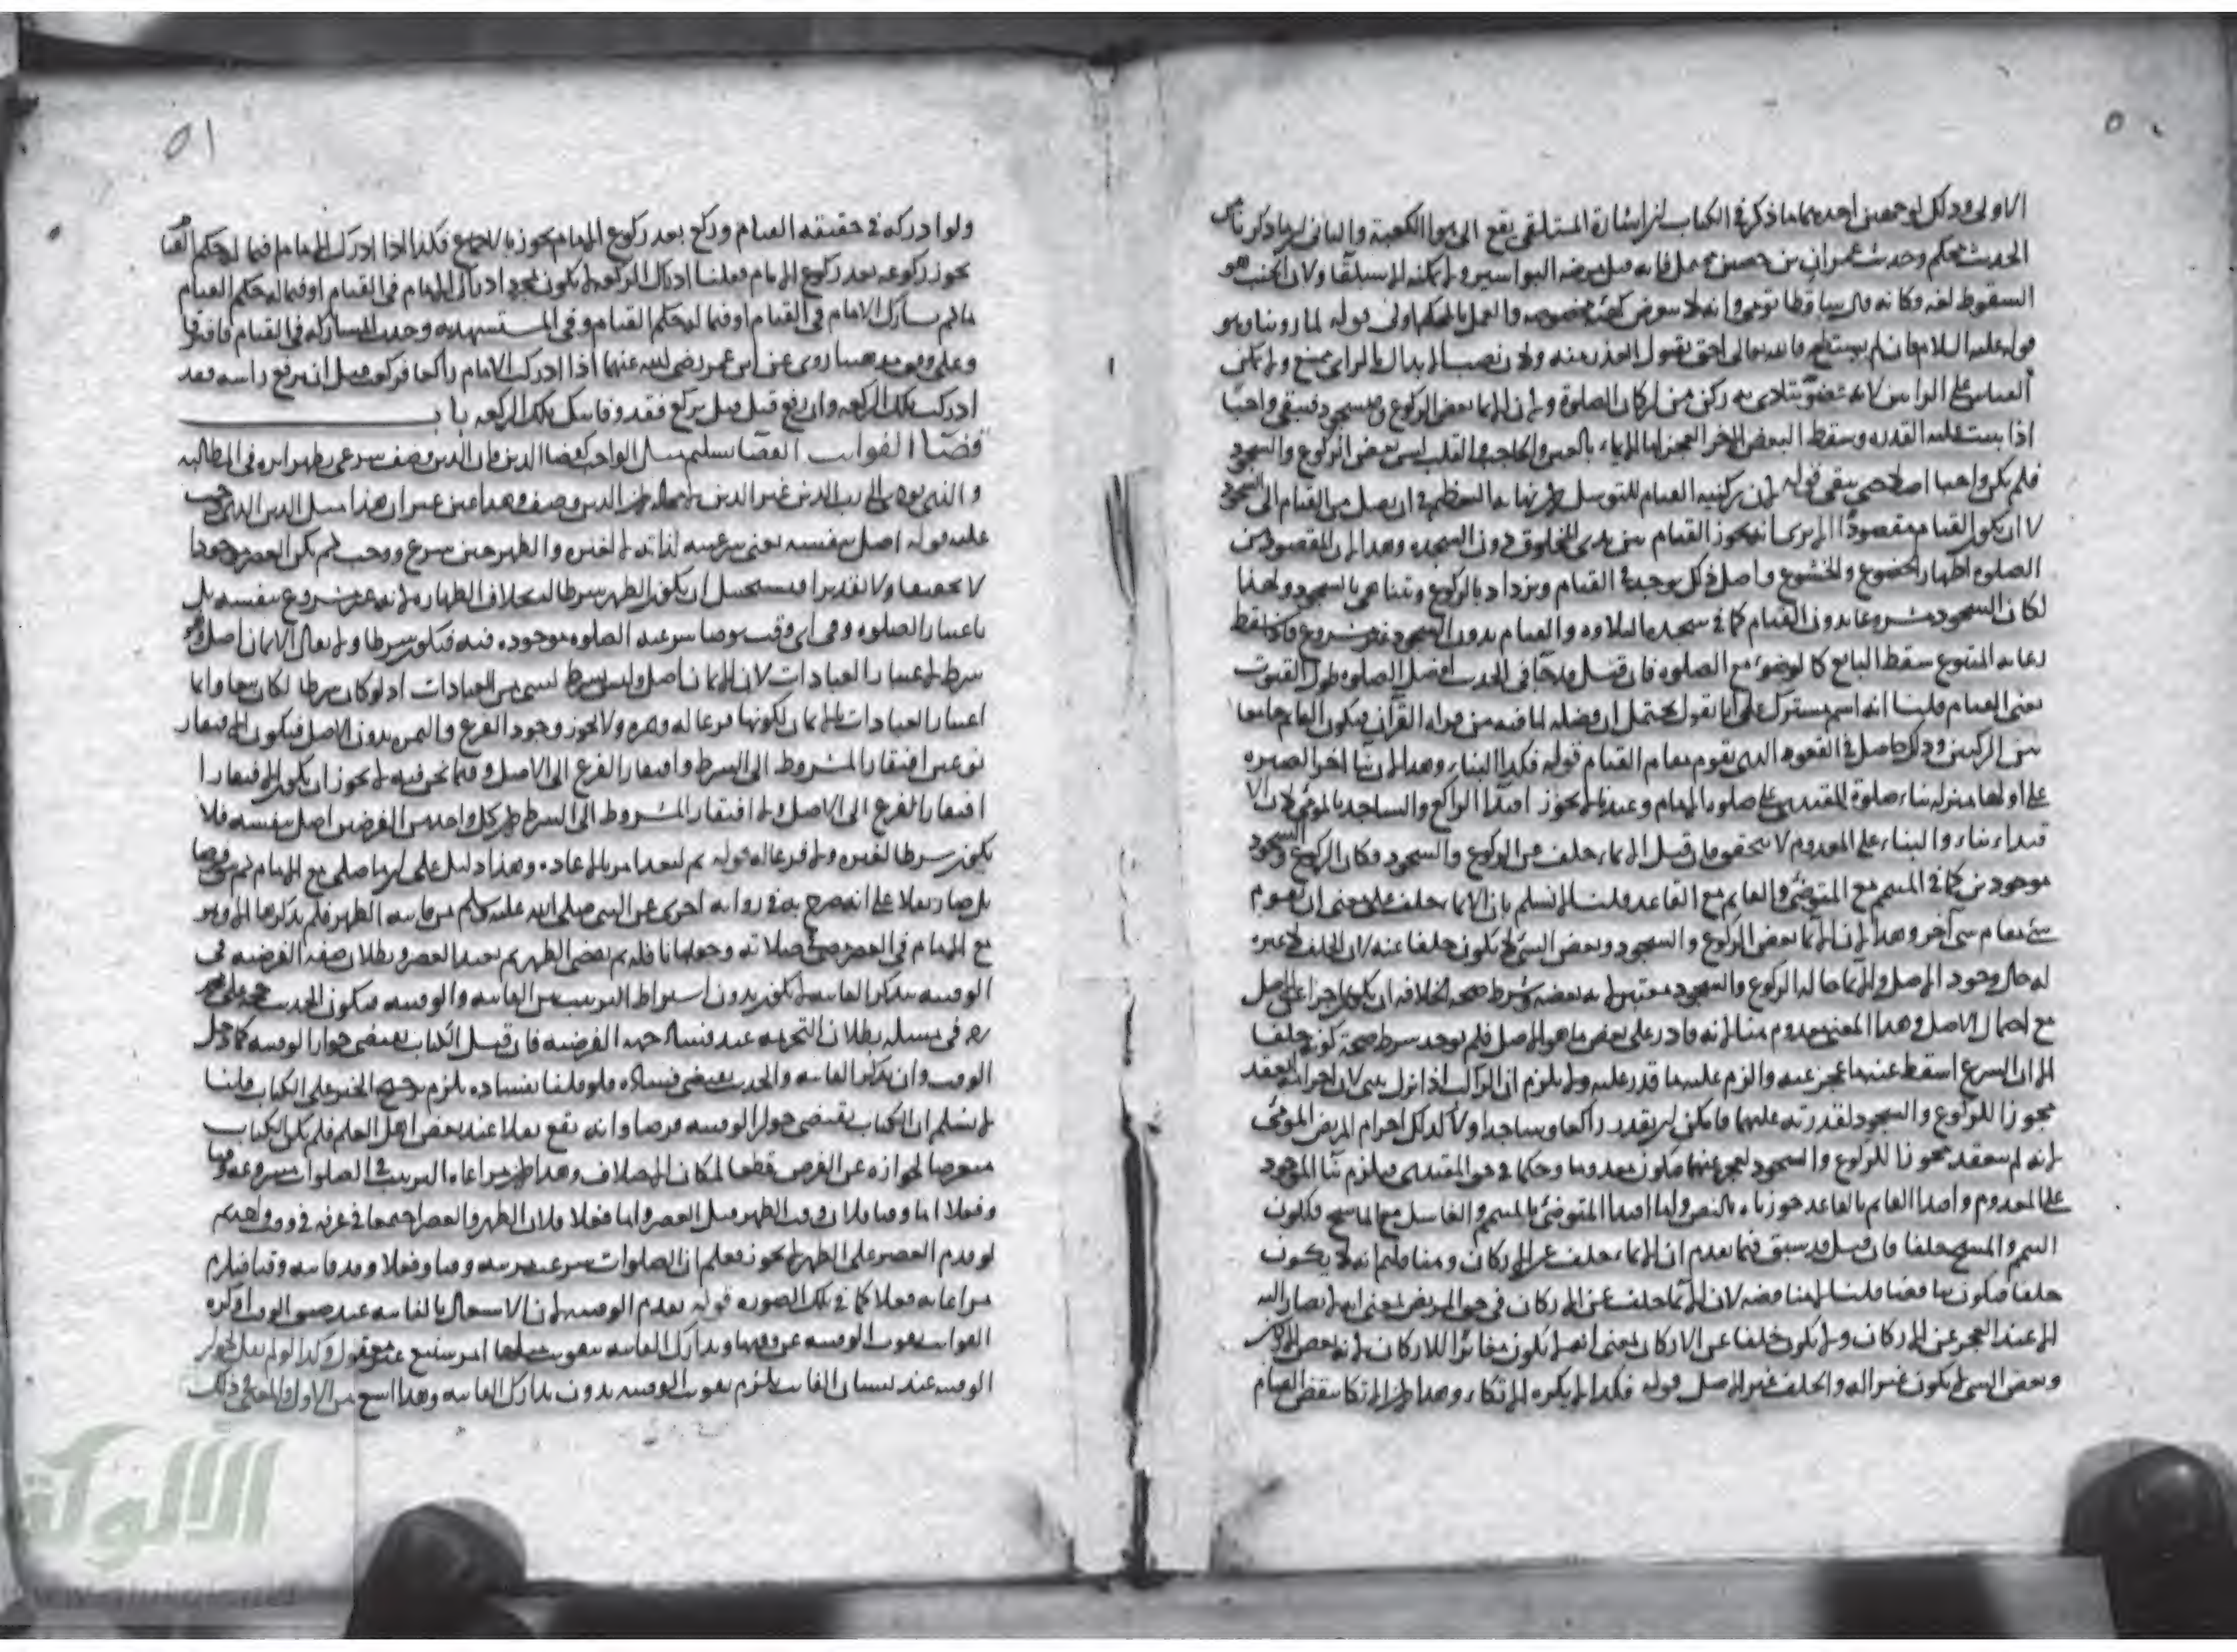 ٥٠
الاولى وذلك لوجهين احدهما ما ذكر في الكتاب لان اشارة المستلقي يقع الى هوا الكعبة والثاني ان ما ذكرنا من
الحديث محكم وحديث عمران بن حصين يحتمل فانه قيل مرضه البواسير ولا يمكنه الا مستلقيا ولان الجنب هو
السقوط لغة
قوله عليه السلام فان لم يستطع فالله تعالى احق بقبول العذر منه ولان نصب الابدال بالراي ممتنع ولا يمكن
القياس على الراس لانه يتادى به ركن من اركان الصلوة ولان الايما بعض الركوع والسجود فيبقى واجبا
والقلب ليس بعض الركوع والسجود
فلم يكن واجبا اصلا حتى يبقى قوله لان ركنية القيام للتوسل لما فيها من التعظيم في ان يصل من القيام الى السجود
لا ان يكون القيام مقصودا الا يرى انه يجوز القيام بين يدي المخلوق دون السجدة وهذا لان المقصود من
الصلوة اظهار الخضوع والخشوع واصل ذلك يوجد في القيام ويزداد بالركوع ويتناهى بالسجود ولهذا
كان السجود مشروعا بدون القيام كما في سجدة التلاوة والقيام بدون السجود غير مشروع فاذا سقط
سقط التابع كالوضوء مع الصلوة فان قيل قد جا في الحديث افضل الصلوة طول القنوت
يعني القيام قلنا انه اسم مشترك على انا نقول يحتمل ان فضله لما فيه من قراة القران فيكون القايم جامعا
بين الركنين وذلك حاصل في القعود الذي يقوم مقام القيام قوله فكذا البناء وهذا لان بنا اخر الصلوة
على اولها بمنزلة بناء صلوة المقتدي على صلوة الامام وعندنا لا يجوز اقتدا الراكع والساجد بالمومي لان الا
قتداء بناء والبناء على المعدوم لا يتحقق فان قيل الايماء خلف عن الركوع والسجود فكان الركوع والسجود
موجودين كما في المتيمم مع المتوضي والقايم مع القاعد قلنا لا نسلم بان الايماء خلف على معنى ان يقوم
شي مقام شي آخر وهذا لان الايما بعض الركوع والسجود وبعض الشي لا يكون خلفا عنه لان الخلف غيره
مع احتمال الاصل وهذا المعنى معدوم هنا لانه قادر على بعض ما هو الاصل فلم يوجد شرط صحة كونه خلفا
الا ان الشرع اسقط عنه ما عجز عنه والزم عليه ما قدر عليه ولا يلزم ان الراكب اذا نزل يبني لان احرامه انعقد
مجوزا للركوع والسجود لقدرته عليهما فامكن ان يقدر راكعا وساجدا ولا كذلك احرام المريض المومي
لانه لم ينعقد مجوزا للركوع والسجود لعجزه عنهما فيكون معدوما وحكما في حق المقتدي فيلزم بنا الموجود
على المعدوم واقتدا القايم بالقاعد جوزناه بالنص واما اقتدا المتوضئ بالمتيمم والغاسل مع الماسح فلكون
التيمم والمسح خلفا فان قيل قد سبق فيما تقدم ان الايماء خلف عن الاركان وهنا قلتم انه لا يكون
خلفا فيكون تناقضا قلنا لا مناقضة لان الايما خلف عن الاركان في حق المريض بمعنى انه لا يصار اليه
الا عند العجز عن الاركان ولا يكون خلفا عن الاركان بمعنى انه لا يكون مغايرا للاركان لانه بعض الاركان
وبعض الشي لا يكون غيرا له والخلف غير الاصل قوله فكذا لا يكره الاتكاء وهذا لان الاتكا ينقض القيام
٥١
ولو ادركه في حقيقة القيام وركع بعد ركوع الامام يجوز بالاجماع فكذا اذا ادرك الامام فيما له حكم القيام
يجوز ركوعه بعد ركوع الامام فعلنا ادراك الركعة لا يكون بمجرد ادراك الامام في القيام او فيما له حكم القيام
ما لم يشارك الامام في القيام او فيما له حكم القيام وفي المستشهد به وجدت المشاركة في القيام فافترقا
وعلى وفق مذهبنا روى عن ابن عمر رضي الله عنهما اذا ادركت الامام راكعا فركعت قبل ان يرفع راسه فقد
ادركت تلك الركعة وان رفع قبل ان يركع فقد فاتتك تلك الركعة باب
قضا الفوايت القضا تسليم مثل الواجب كقضا الدين فان الدين وصف شرعي يظهر اثره في المطالبة
عليه قوله اصل بنفسه يعني شرعيته لذاته لا لغيره والظهر حين شرع ووجب لم يكن العصر موجودا
لا تحقيقا ولا تقديرا فيستحيل ان يكون الظهر شرطا له بخلاف الطهارة لانه غير مشروع بنفسه بل
باعتبار الصلوة وفي اي وقت يوضا شرعية الصلوة موجودة فيه فيكون شرطا ولا يقال الايمان اصل وهو
شرط لاعتبار العبادات لان الايمان اصل وليس بشرط لشي من العبادات اذ لو كان شرطا لكان تبعا وانما
اعتبار العبادات بالايمان لكونها فرعا له وثمرة ولا يجوز وجود الفرع والثمر بدون الاصل فيكون الافتقار
نوعين افتقار المشروط الى الشرط وافتقار الفرع الى الاصل وفيما نحن فيه لا يجوز ان يكون الافتقار
افتقار الفرع الى الاصل ولا افتقار المشروط الى الشرط لان كل واحد من الفرضين اصل بنفسه فلا
يكون شرطا لغيره ولا فرعا له قوله ثم ليعد امر بالاعادة وهذا دليل على ان ما صلى مع الامام لم يقع فرضا
بل صار نفلا على انه صرح به في رواية اخرى عن النبي صلى الله عليه وسلم من فاتته الظهر فلم يذكرها الا وهو
مع الامام في العصر مضى في صلاته وجعلها نافلة ثم يقضي الظهر ثم يعيد العصر وبطلان صفة الفرضية في
الوقتية بتذكر الفايتة لا يكون بدون اشتراط الترتيب بين الفايتة والوقتية فيكون الحديث حجة على محمد
ره في مسلة بطلان التحريمة عند فساد جهة الفرضية فان قيل الكتاب يقتضي جواز الوقتية كما دخل
الوقت وان تذكر الفايتة والحديث يقتضي فساده فلو قلنا بفساده يلزم ترجيح الخبر على الكتاب قلنا
لا نسلم ان الكتاب يقتضي جواز الوقتية فرضا وانه يقع نفلا عند بعض اهل العلم فلم يكن الكتاب
متعرضا لجوازه عن الفرض قطعا لمكان الاختلاف وهذا لان مراعاة الترتيب في الصلوات مشروعة وقتا
وفعلا اما وقتا فلان وقت الظهر قبل العصر واما فعلا فلان الظهر والعصر اجتمعا في عرفة في وقت واحد ثم
لو قدم العصر على الظهر لا يجوز فعلم ان الصلوات شرعت مرتبة وقتا وفعلا وقد فاته وقتا فيلزم
مراعاته فعلا كما في تلك الصورة قوله يقدم الوقتية لان الاشتغال بالفايتة عند ضيق الوقت او كثرة
الفوايت يفوت الوقتية عن وقتها
الوقتية عند نسيان الفايتة يلزم تفويت الوقتية بدون تدارك الفايتة وهذا
الألوكة